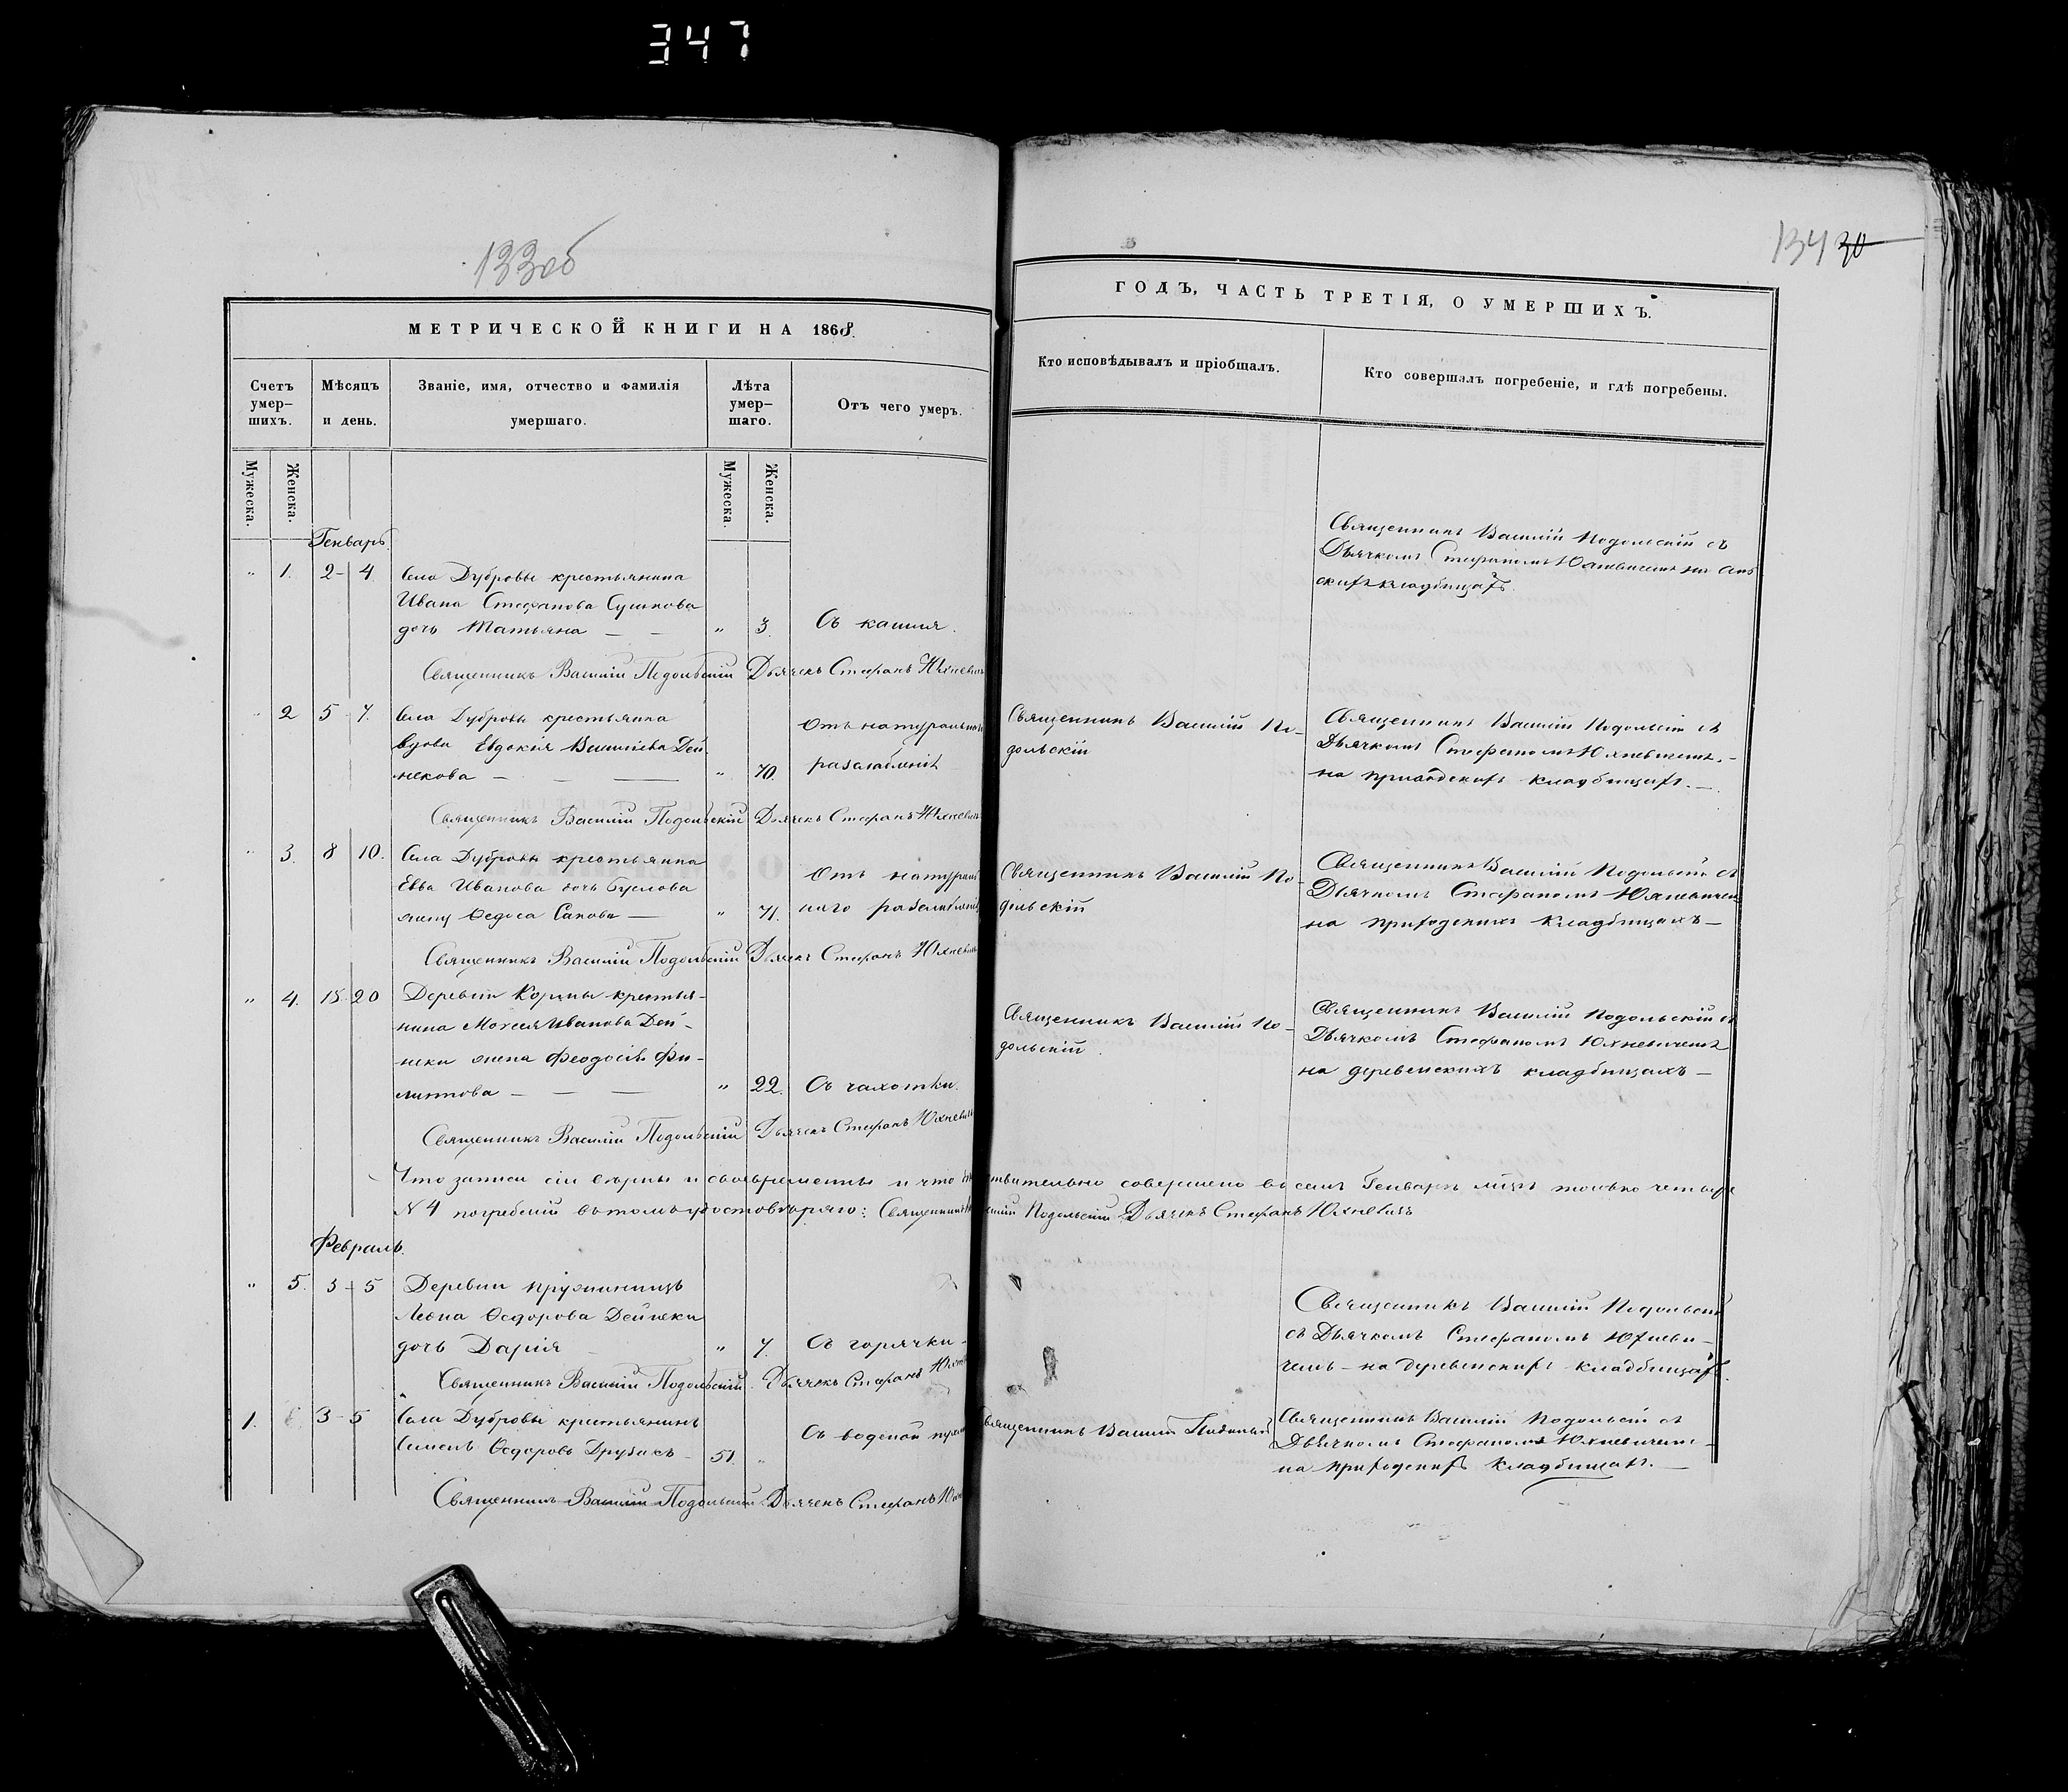 347
133об
134 30
МЕТРИЧЕСКОЙ КНИГИ НА 1868
ГОДЪ, ЧАСТЬ ТРЕТІЯ, О УМЕРШИХЪ.
Счетъ умер-шихъ.
Мѣсяцъ и день.
Званіе, имя, отчество и фамилія умершаго.
Лѣта умер-шаго.
Отъ чего умеръ.
Кто исповѣдывалъ и пріобщалъ.
Кто совершалъ погребеніе, и гдѣ погребены.
Мужеска.
Женска.
Мужеска.
Женска.
Генварь
" 1. 2 - 4
Села Дубровы крестьянина
Ивана Стефанова Сушкова
дочь Татьяна — — " 3. Съ кашля.
Священникъ Василій Подольскій съ
Дьячкомъ Стефаномъ Юхневичемъ на
кладбищахъ.
Священникъ Василій Подольскій Дьячекъ Стефанъ Юхневичъ
" 2 5 7.
Села Дубровы крестьянка
вдова Евдокія Василіева Дей-
некова — — — " 70.
Отъ натуральнаго
разслабленія
Священникъ Василій По-
дольскій
Священникъ Василій Подольскій съ
Дьячкомъ Стефаномъ Юхневичемъ.-
на приходскихъ кладбищахъ. —
Священникъ Василій Подольскій Дьячекъ Стефанъ Юхневичъ
" 3. 8 10.
Села Дубровы крестьянка
Евва Иванова
Ѳедоса Сапова — " 71.
Отъ натураль
наго разслабленія
Священникъ Василій По-
дольскій
Священникъ Василій Подольскій съ
Дьячкомъ Стефаномъ Юхневичемъ
на приходскихъ кладбищахъ —
Священникъ Василій Подольскій Дьячекъ Стефанъ Юхневичъ
" 4. 18 20
Деревни Кормы крестья-
нина Мойсея Иванова Дей-
неки жена Феодосія Фи-
липпова — — — " 22. Съ чахотки.
Священникъ Василій По-
дольскій.
Священникъ Василій Подольскій съ
Дьячкомъ Стефаномъ Юхневичемъ
на деревенскихъ кладбищахъ —
Священникъ Василій Подольскій Дьячекъ Стефанъ Юхневичъ
Что записи сіи вѣрны и своевременны и что дѣйствительно совершено въ семъ Генварѣ мцѣ только четыре
№ 4 погребеній въ томъ удостовѣряю: Священникъ Василій Подольскій Дьячекъ Стефанъ Юхневичъ
Февраль.
" 5. 3 - 5
Деревни Пружининцъ
Леона Ѳедорова Дейнеки
дочь Дарія — " 7. Съ горячки -
Священникъ Василій Подольскій
съ Дьячкомъ Стефаномъ Юхневи-
чемъ - на деревенскихъ кладбищахъ.
Священникъ Василій Подольскій. Дьячекъ Стефанъ Юхневичъ
1. 3 - 5
Села Дубровы крестьянинъ
Симеонъ Ѳедоровъ Друзикъ - 51. "
Съ водяной
Священникъ Василій Подольскій
Священникъ Василій Подольскій съ
Дьячкомъ Стефаномъ Юхневичемъ -
на приходскихъ кладбищахъ. —
Священникъ Василій Подольскій. Дьячекъ Стефанъ Юхневичъ